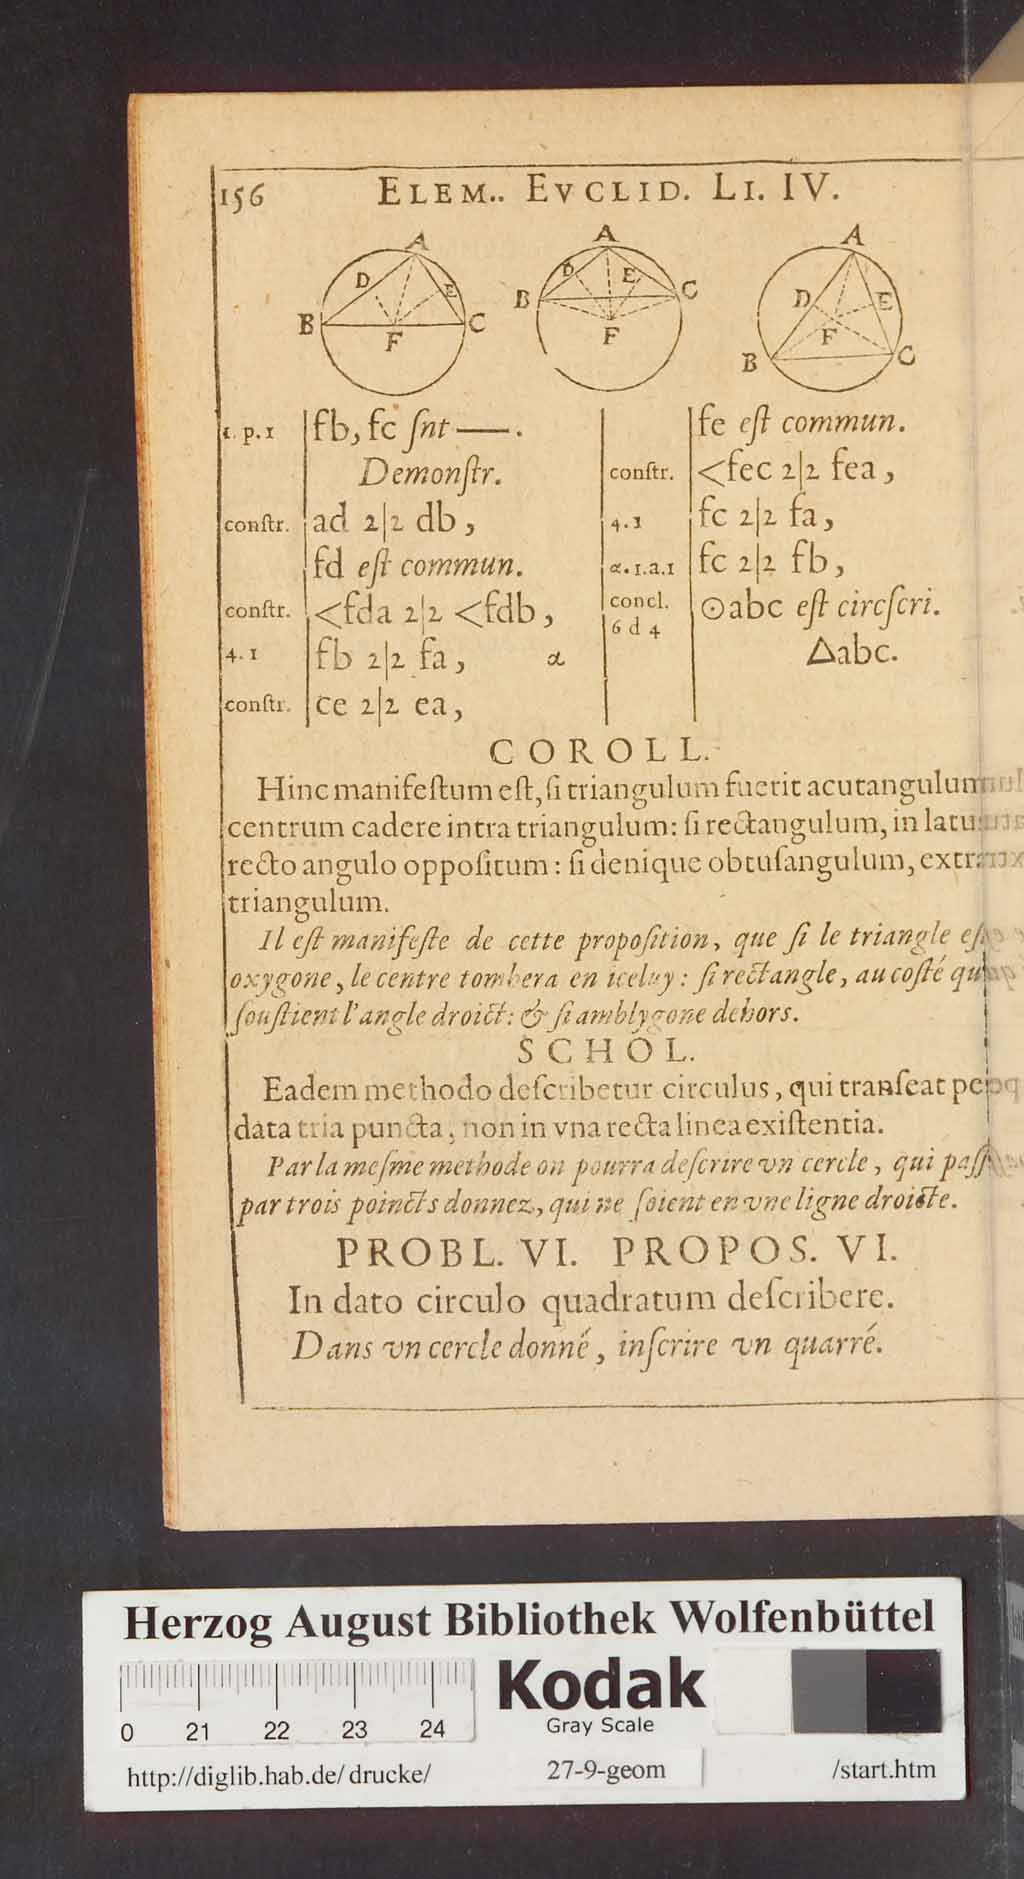 156 ELEM.. EVCLID. LI. IV.
A
D
E
B
C
F
A
D
E
B
C
F
A
D
E
F
B
C
1. p. 1 fb, fc ſnt —.
Demonſtr.
conſtr. ad 2|2 db,
fd eſt commun.
conſtr. <fda 2|2 <fdb,
4. 1 fb 2|2 fa, α
conſtr. ce 2|2 ea,
fe eſt commun.
conſtr. <fec 2|2 fea,
4. 1 fc 2|2 fa,
α. 1. a. 1 fc 2|2 fb,
concl. ⊙abc eſt circſcri.
6 d 4
△abc.
COROLL.
Hinc manifeſtum eſt, ſi triangulum fuerit acutangulum
centrum cadere intra triangulum: ſi rectangulum, in latus
recto angulo oppoſitum: ſi denique obtuſangulum, extra
triangulum.
Il eſt manifeſte de cette propoſition, que ſi le triangle eſt
oxygone, le centre tombera en iceluy: ſi rectangle, au coſté qui
ſouſtient l'angle droict: & ſi amblygone dehors.
SCHOL.
Eadem methodo deſcribetur circulus, qui tranſeat per
data tria puncta, non in vna recta linea exiſtentia.
Par la meſme methode on pourra deſcrire vn cercle, qui paſſe
par trois poincts donnez, qui ne ſoient en vne ligne droicte.
PROBL. VI. PROPOS. VI.
In dato circulo quadratum deſcribere.
Dans vn cercle donné, inſcrire vn quarré.
Herzog August Bibliothek Wolfenbüttel
0 21 22 23 24
Kodak
Gray Scale
http://diglib.hab.de/drucke/ 27-9-geom /start.htm